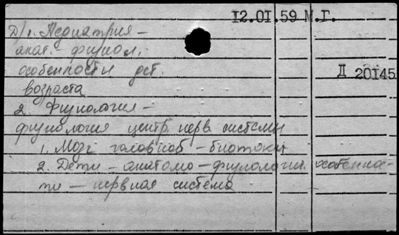 12.01.59 М.Г.
Д/1. Педиатрия -
анат. физиол.
особенности дет.
возраста
Д 20145
2. Физиология -
физиология центр. нерв. системы
1. Мозг головной - биотоки
2. Дети - анатомо-физиологич. особеннос-
ти - нервная система